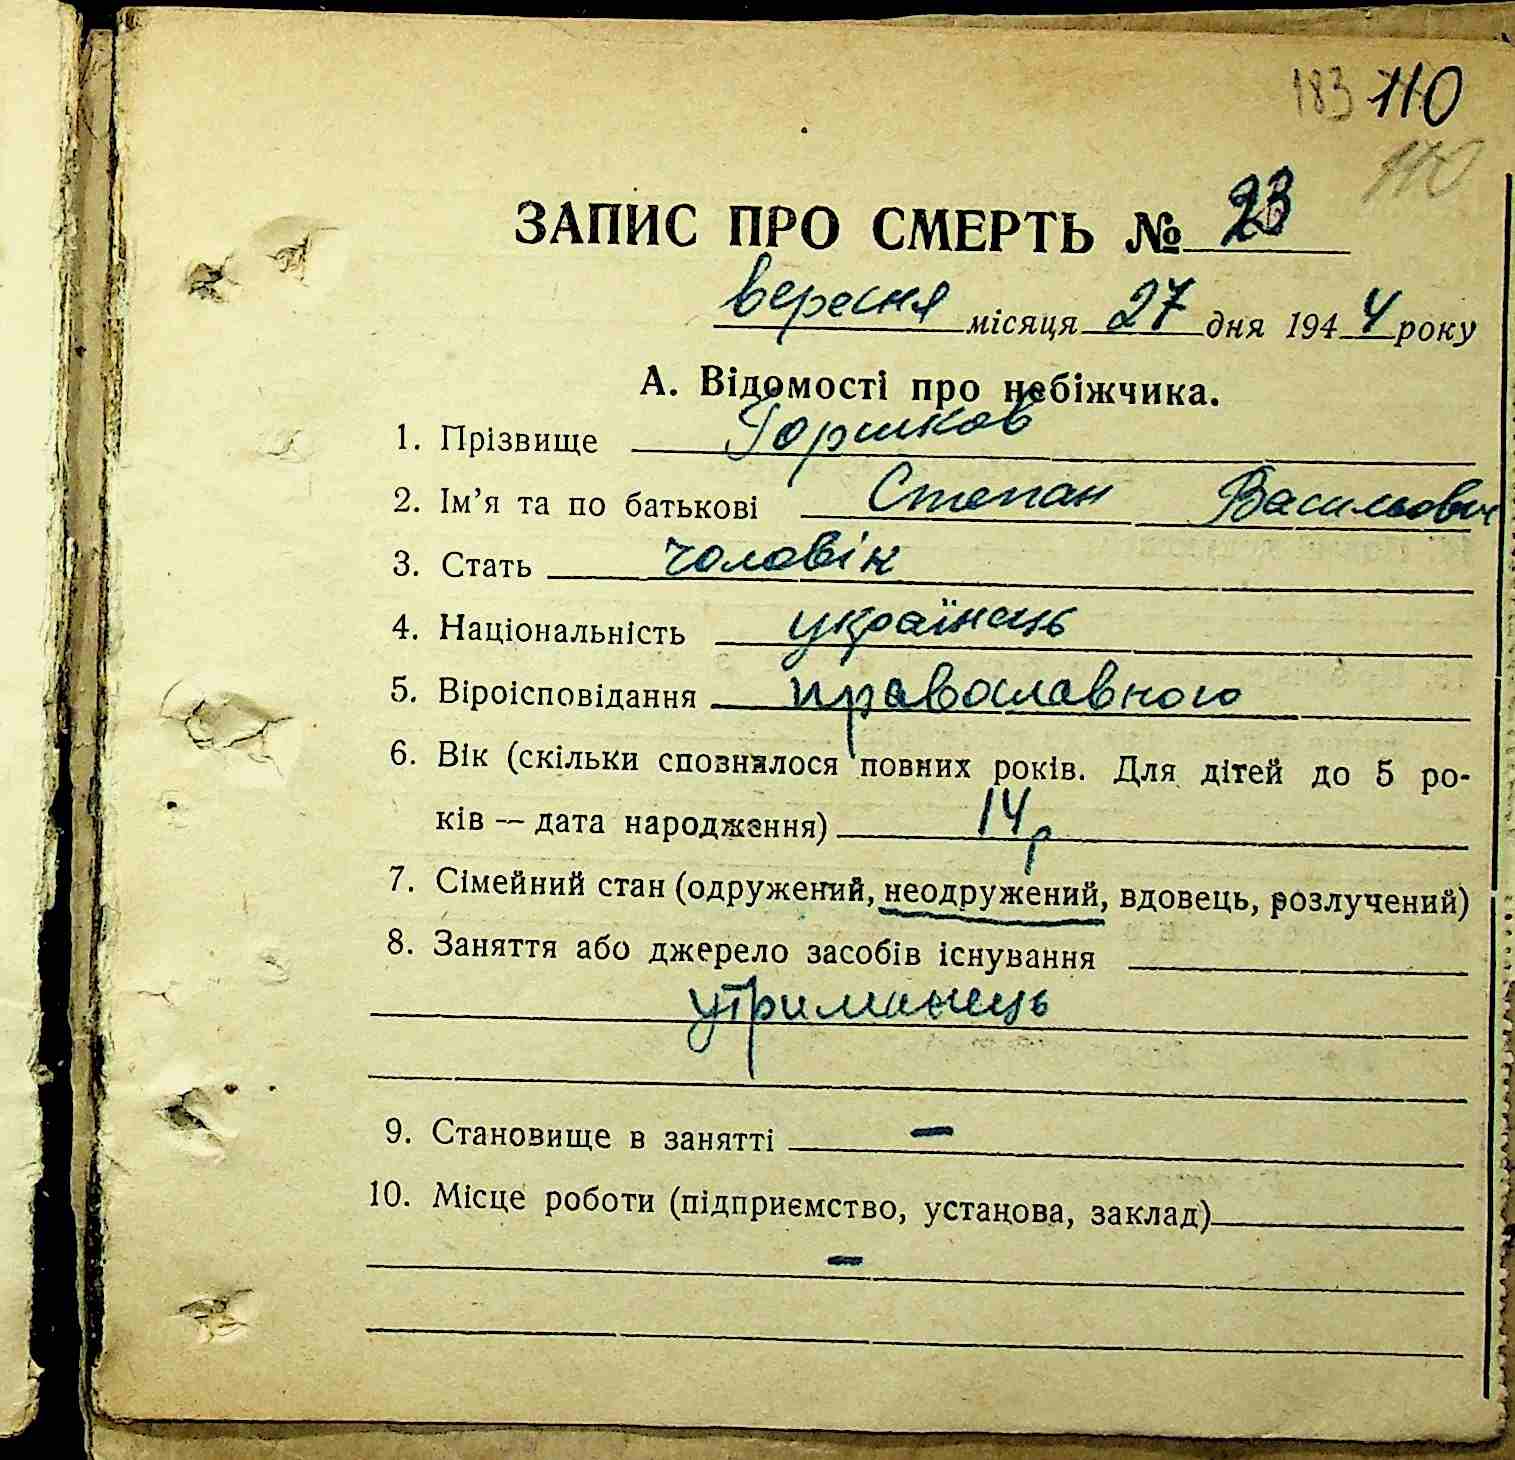 183 110
110
ЗАПИС ПРО СМЕРТЬ № 23
вересня місяця 27 дня 1944 року
А. Відомості про небіжчика.
1. Прізвище Горшков
2. Ім’я та по батькові Степан Васильович
3. Стать чоловік
4. Національність українець
5. Віроісповідання православного
6. Вік (скільки сповнилося повних років. Для дітей до 5 ро-
ків — дата народження) 14 р
7. Сімейний стан (одружений, неодружений, вдовець, розлучений)
8. Заняття або джерело засобів існування
утриманець
9. Становище в занятті –
10. Місце роботи (підприємство, установа, заклад)
–